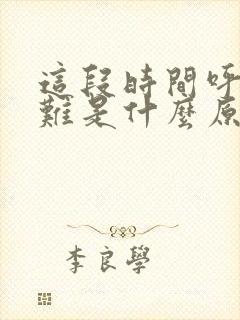 這段時間呼
難是什麼原
李良學